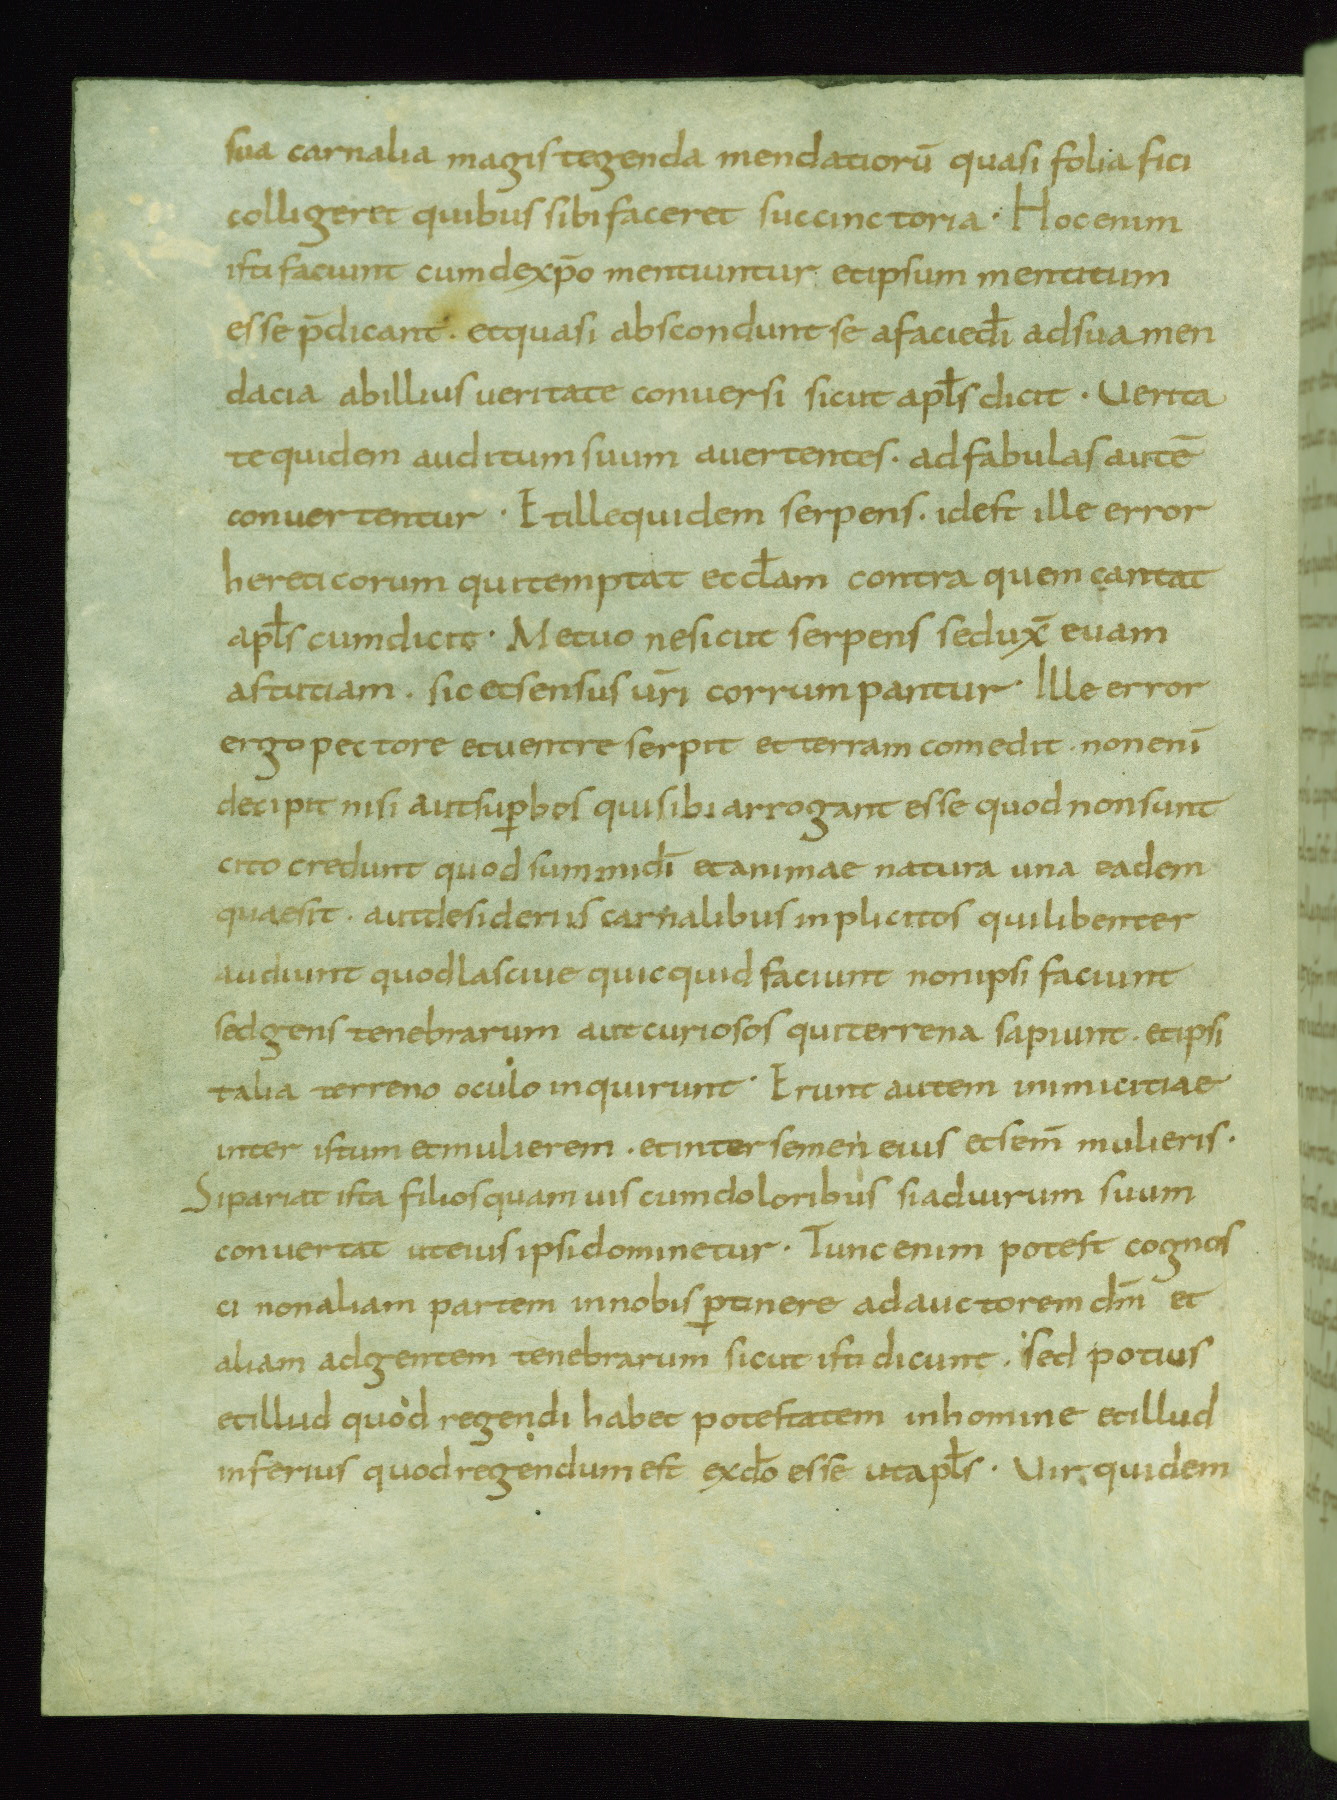 sua carnalia magis tegenda mendatiorū quasi folia fici
colligeret quibus sibi faceret succinctoria · Hoc enim
isti faciunt cum de xp̄o mentiuntur et ipsum mentitum
esse p̄dicant · et quasi abscondunt se a facie dī ad sua men
dacia ab illius ueritate conuersi sicut apl̄s dicit · Uerita
te quidem auditum suum auertentes · ad fabulas autē
conuertentur · Et ille quidem serpens · id est ille error
hereticorum qui temptat eccl̄am contra quem cantat
apl̄s cum dicit · Metuo ne sicut serpens sedux̄ euam
astutiam · sic et sensus ur̄i corrumpantur · Ille error
ergo pectore et uentre serpit et terram comedit · non enī
decipit nisi aut sup̱bos qui sibi arrogant esse quod non sunt
cito credunt quod summi dī et animae natura una eadem
quae sit · aut desideriis carnalibus inplicitos qui libenter
audiunt quod lasciue quicquid faciunt non ipsi faciunt
sed gens tenebrarum aut curiosos qui terrena sapiunt · et ipsi
talia terreno oculo inquirunt · Erunt autem inimicitiae
inter istum et mulierem · et inter semen eius et sem̄ mulieris ·
Si pariat ista filios quamuis cum doloribus si ad uirum suum
conuertat ut eius ipsi dominetur · Tunc enim potest cognos
ci non aliam partem in nobis p̱tinere ad auctorem dm̄ et
aliam ad gentem tenebrarum sicut isti dicunt · sed potius
et illud quod regendi habet potestatem in homine et illud
inferius quod regendum est ex do̅ esse ut apl̄s · Uir quidem